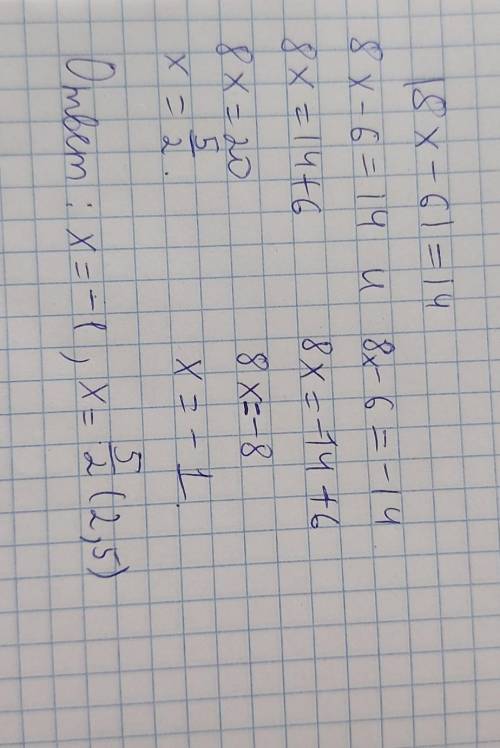 |8x-6|=14
8x-6=14 и 8x-6=-14
8x=14+6 8x=-14+6
8x=20 8x=-8
x=5/2. x=-1.
Ответ: x=-1, x=5/2 (2,5)